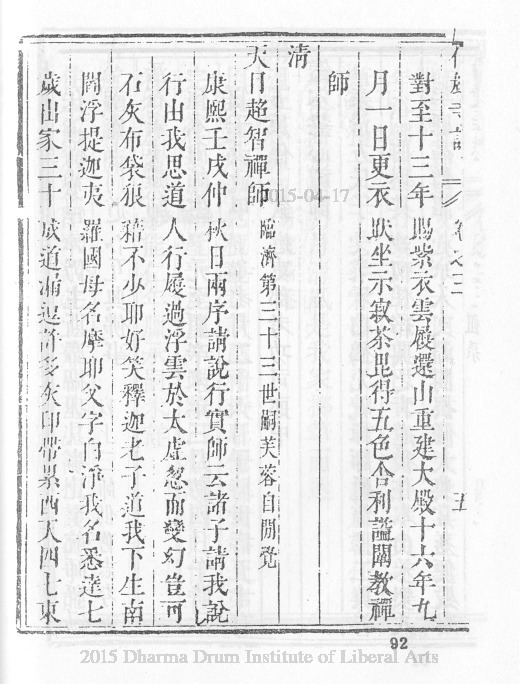 卷之三
五
對至十三年賜紫衣雲屐還山重建大殿十六年九
月一日更衣趺坐示寂茶毘得五色舍利謚闡教禪
師
清
天目超智禪師臨濟第三十三世嗣芙蓉自閒覺
康熙壬戌仲秋日兩序請說行實師云諸子請我說
行由我思道人行履過浮雲於太虛忽而變幻豈可
石灰布袋狼藉不少耶好笑釋迦老子道我下生南
閻浮提迦夷羅國母名摩耶父字白淨我名悉達七
歲出家三十成道漏逗許多灰印帶累西天四七東
92
2015-04-17
2015 Dharma Drum Institute of Liberal Arts